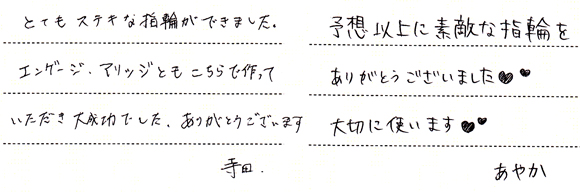 とてもステキな指輪ができました。
エンゲージ、マリッジともこちらで作って
いただき大成功でした、ありがとうございます
寺田.
予想以上に素敵な指輪を
ありがとうございました♥♥
大切に使います♥♥
あやか